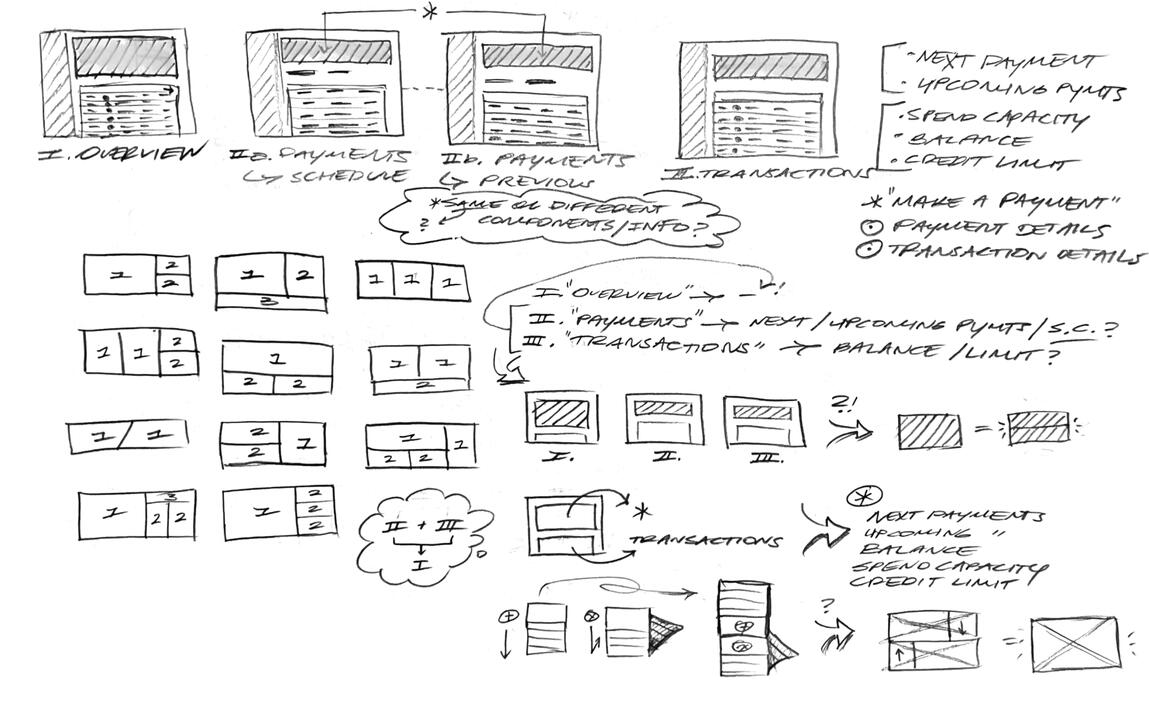 *
I. OVERVIEW
IIa. PAYMENTS
↳ SCHEDULE
IIb. PAYMENTS
↳ PREVIOUS
III. TRANSACTIONS
• NEXT PAYMENT
• UPCOMING PYMTS
• SPEND CAPACITY
• BALANCE
• CREDIT LIMIT
* "MAKE A PAYMENT"
⊙ PAYMENT DETAILS
⊙ TRANSACTION DETAILS
* SAME OR DIFFERENT
? COMPONENTS/INFO?
1 2 2
1 2 3
1 1 1
1 1 2 2
1 2 2
1 1 2
1 / 1
2 2 1
1 1 2 2
1 3 2 2
1 2 2 2
II + III
↓
I
I. "OVERVIEW" → – !
II. "PAYMENTS" → NEXT / UPCOMING PYMTS / S.C. ?
III. "TRANSACTIONS" → BALANCE / LIMIT ?
I. II. III.
?!
=
*
TRANSACTIONS
*
NEXT PAYMENTS
UPCOMING "
BALANCE
SPEND CAPACITY
CREDIT LIMIT
?
=